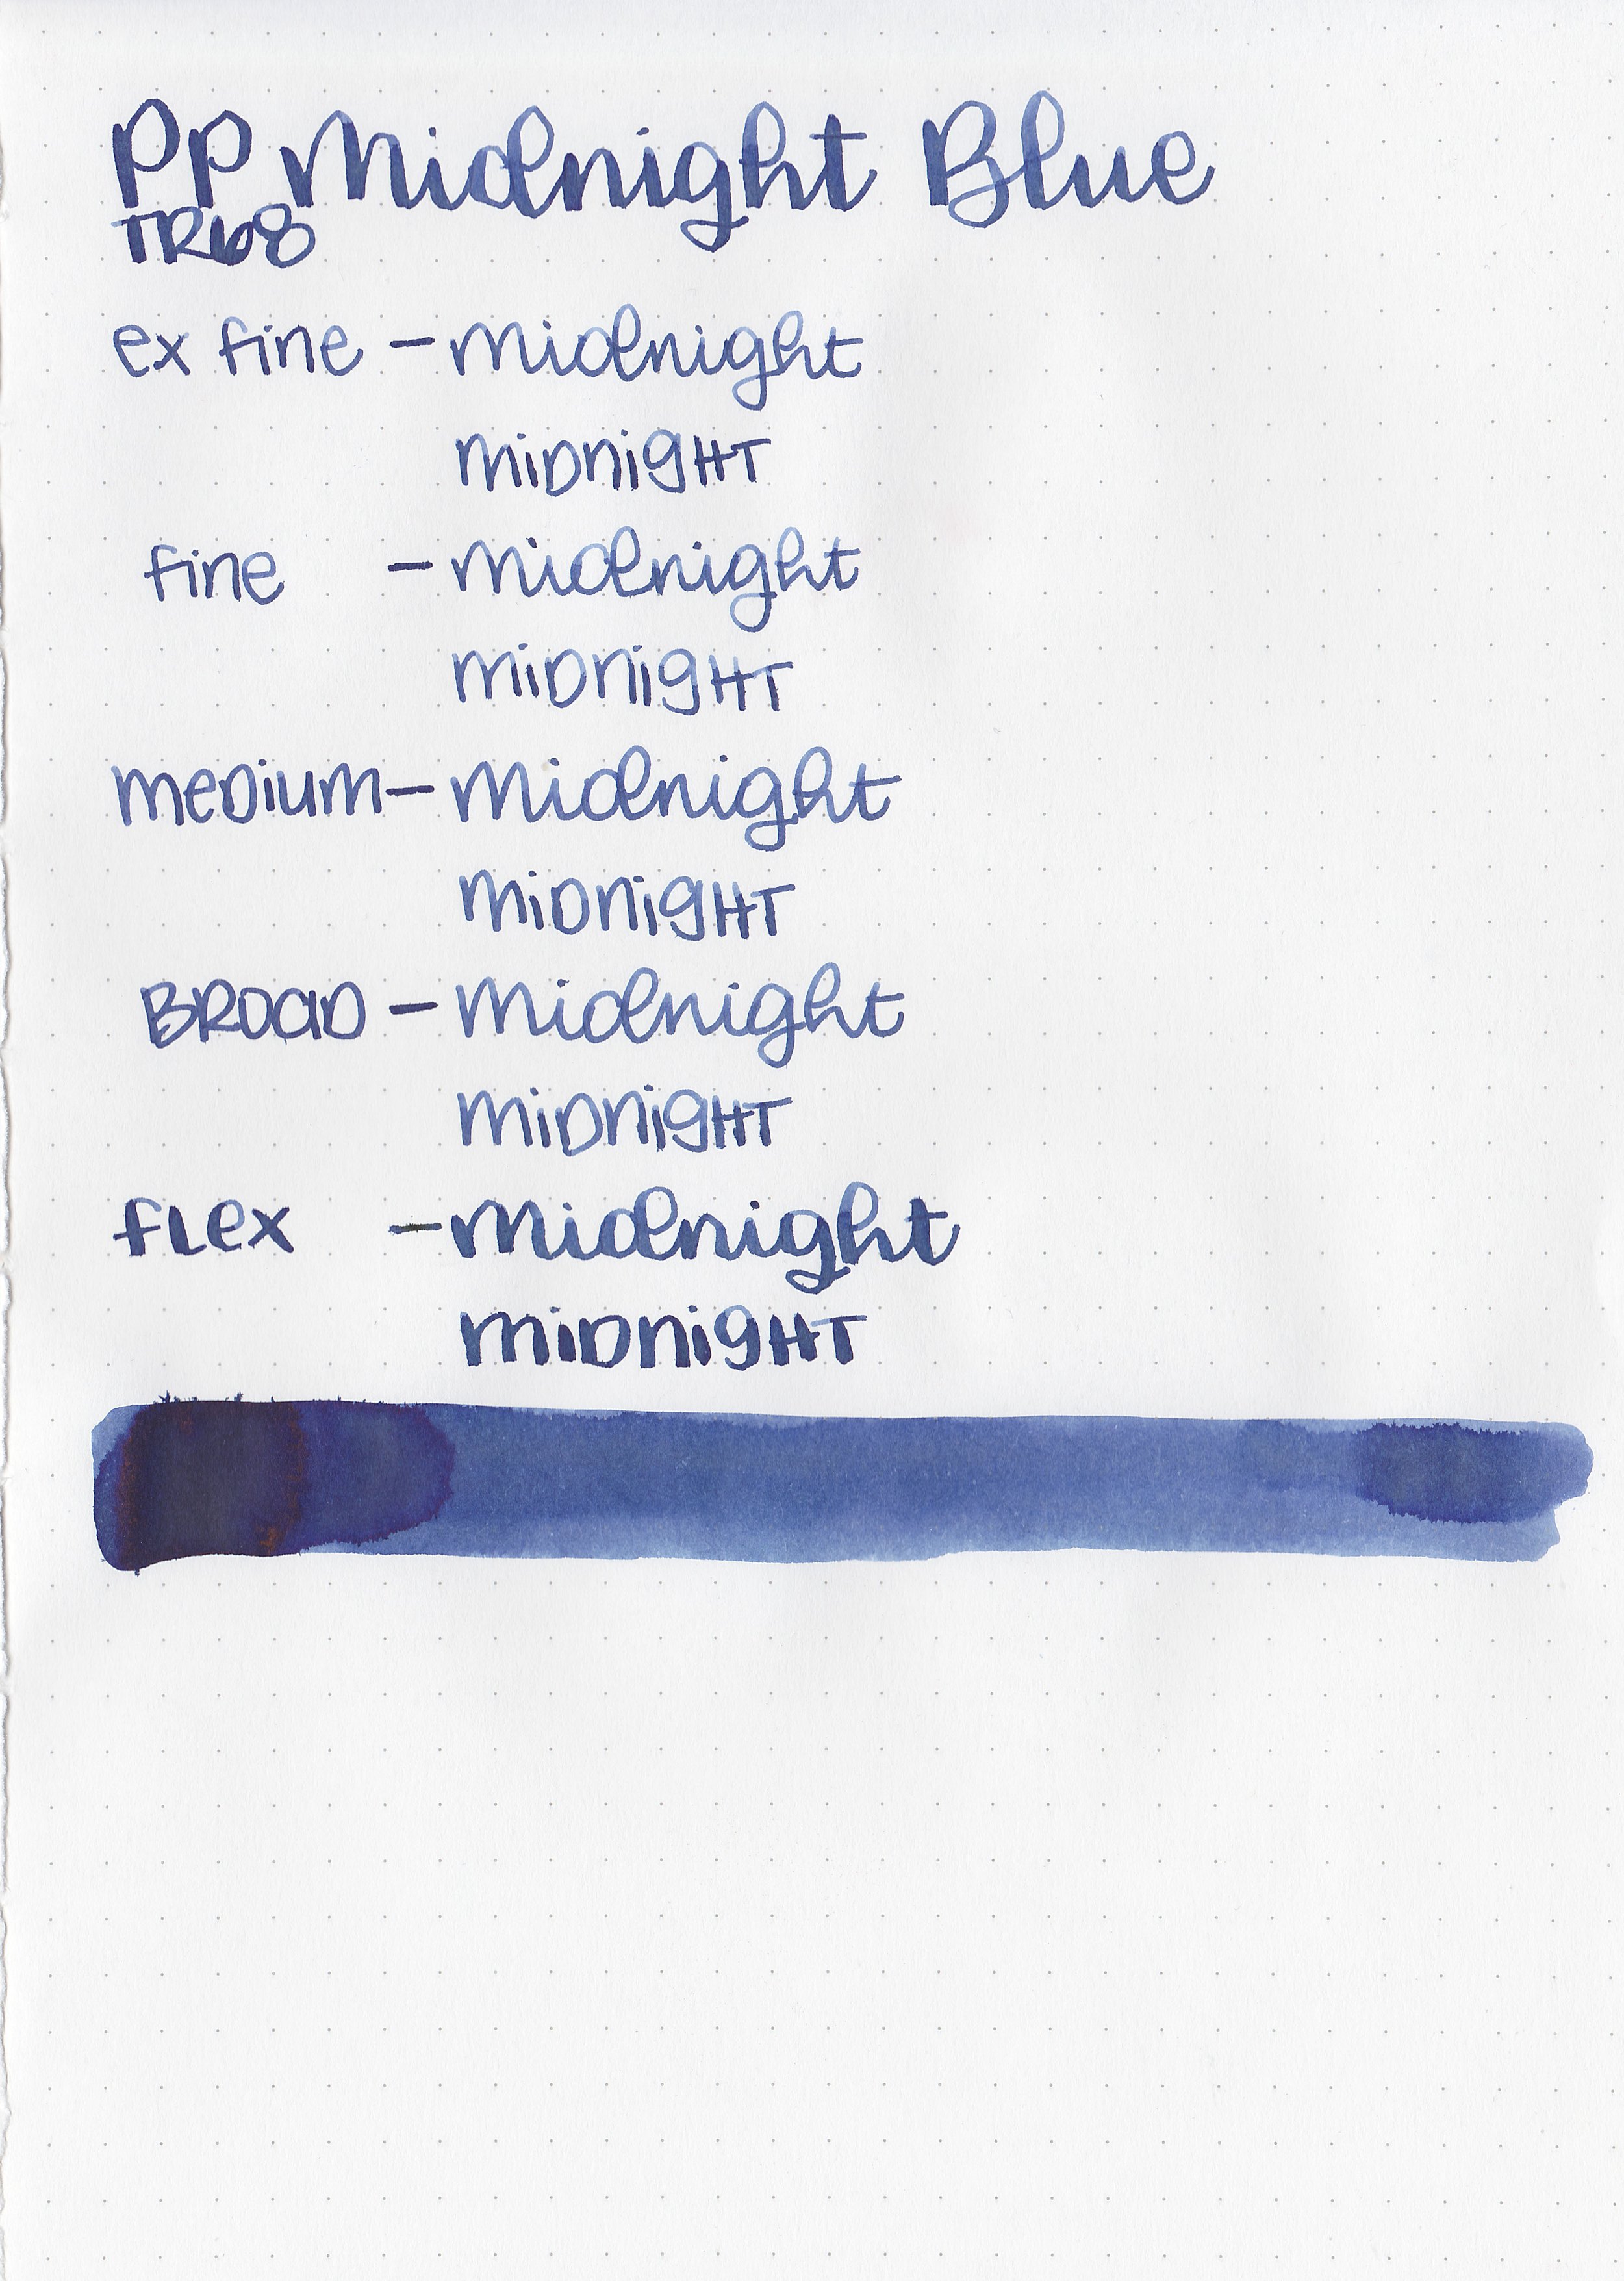 PP Midnight Blue
TR68
ex fine - Midnight
MIDNIGHT
fine - Midnight
MIDNIGHT
medium - Midnight
MIDNIGHT
BROAD - Midnight
MIDNIGHT
flex - Midnight
MIDNIGHT